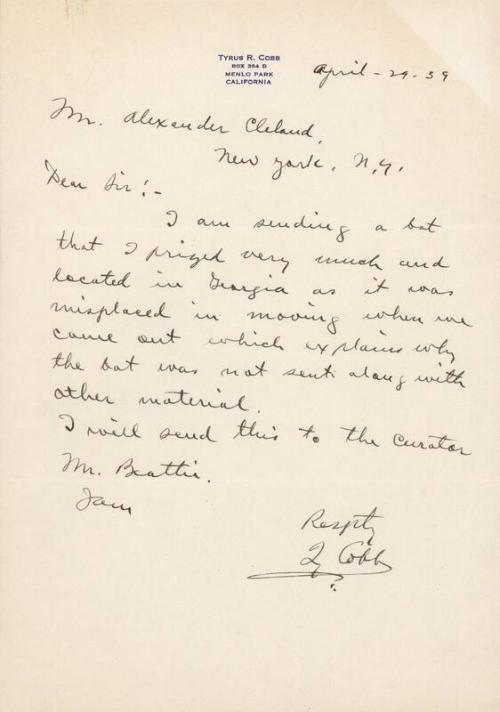 TYRUS R. COBB
BOX 354 D
MENLO PARK
CALIFORNIA
April - 29 - 39
Mr. Alexander Cleland,
New York, N.Y.
Dear Sir:-
I am sending a bat
that I prized very much and
located in Georgia as it was
misplaced in moving when we
came out which explains why
the bat was not sent along with
other material.
I will send this to the curator
Mr. Beattie.
I am
Respty
Ty Cobb